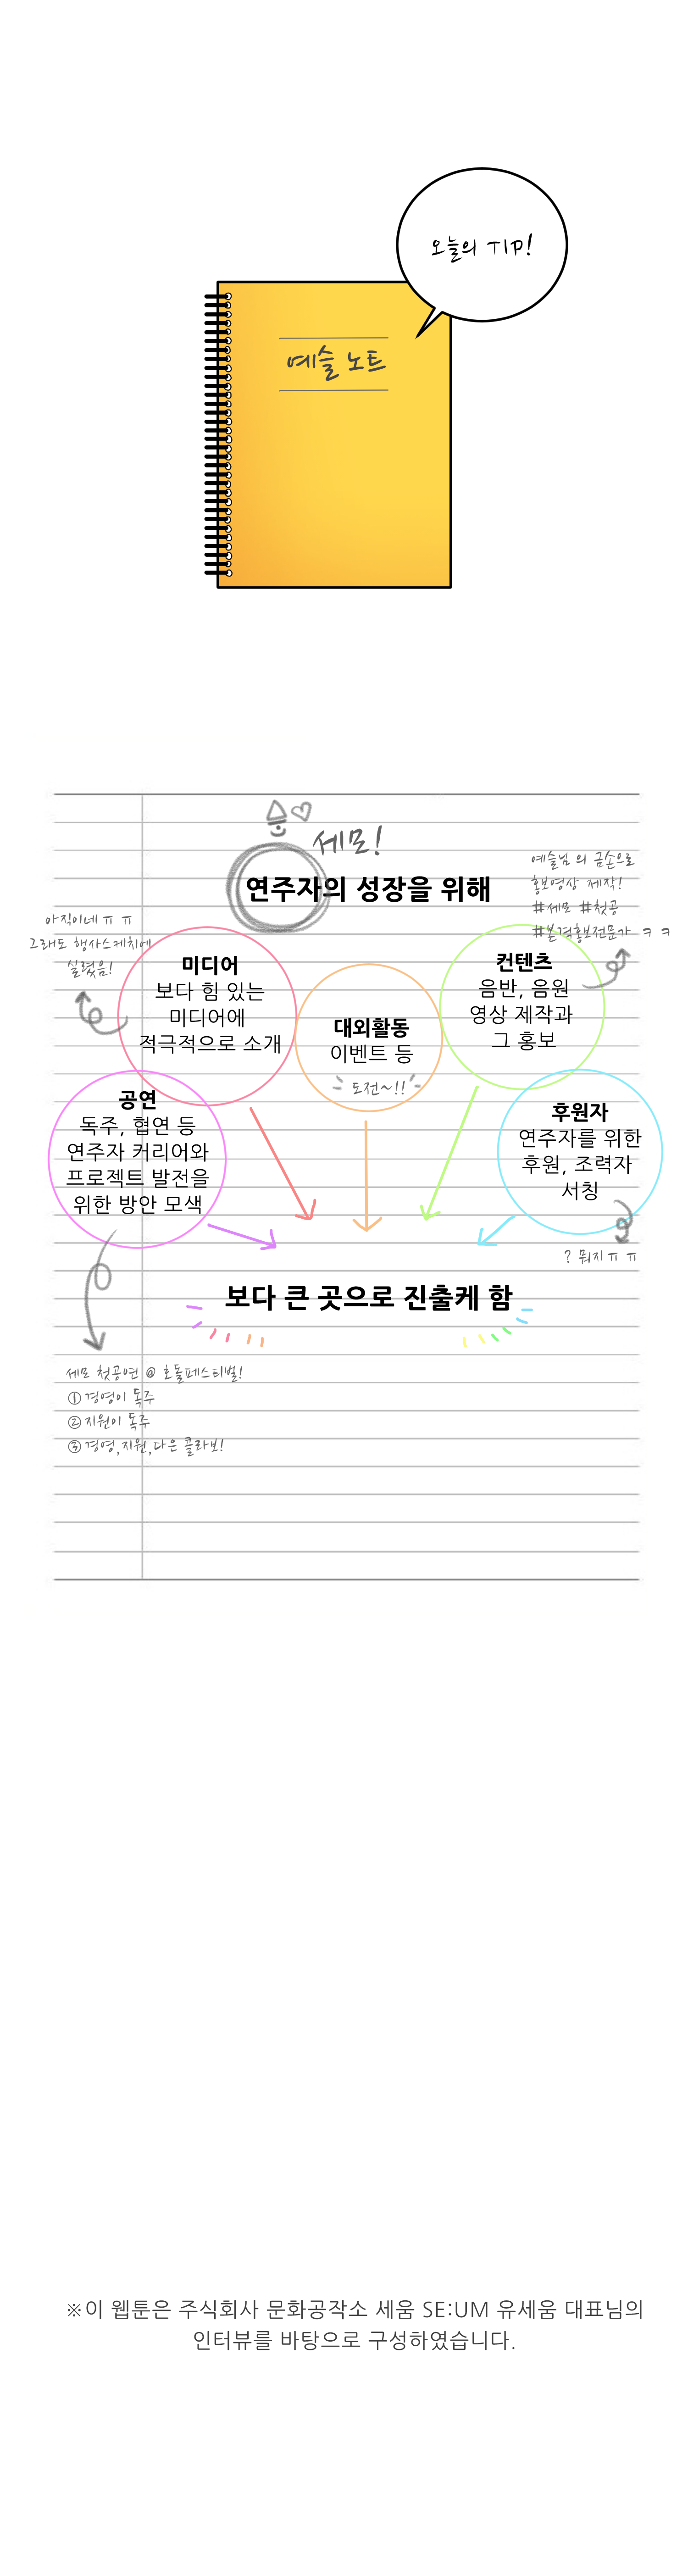 오늘의 TIP!
예슬 노트
세모!
연주자의 성장을 위해
예슬님의 금손으로
홍보영상 제작!
#세모 #첫공
#본격홍보전문가 ㅋㅋ
아직이네ㅠㅠ
그래도 행사스케치에
실렸음!
미디어
보다 힘 있는
미디어에
적극적으로 소개
대외활동
이벤트 등
도전~!!
컨텐츠
음반, 음원
영상 제작과
그 홍보
공연
독주, 협연 등
연주자 커리어와
프로젝트 발전을
위한 방안 모색
후원자
연주자를 위한
후원, 조력자
서칭
? 뭐지ㅠㅠ
보다 큰 곳으로 진출케 함
세모 첫공연 @ 호돌페스티벌!
① 경영이 독주
② 지원이 독주
③ 경영,지원,다은 콜라보!
※이 웹툰은 주식회사 문화공작소 세움 SE:UM 유세움 대표님의
인터뷰를 바탕으로 구성하였습니다.